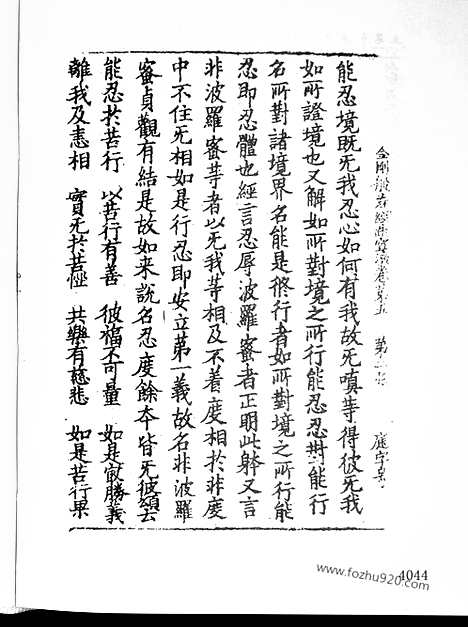 金剛般若經宣演卷第五 第二張 庭字号
能忍境既无我忍心如何有我故无嗔等得彼无我
如所證境也又解如所對境之所行能忍忍對能行
名所對諸境界名能是脩行者如所對境之所行能
忍即忍體也經言忍辱波羅蜜者正明此躰又言
非波羅蜜等者以无我等相及不着度相於非度
中不住无相如是行忍即安立第一義故名非波羅
蜜貞觀有結是故如来說名忍度餘夲皆无彼頌云
能忍於苦行 以苦行有善 彼福不可量 如是最勝義
離我及恚相 實无於苦惱 共樂有慈悲 如是苦行果
4044
www.fozhu920.com